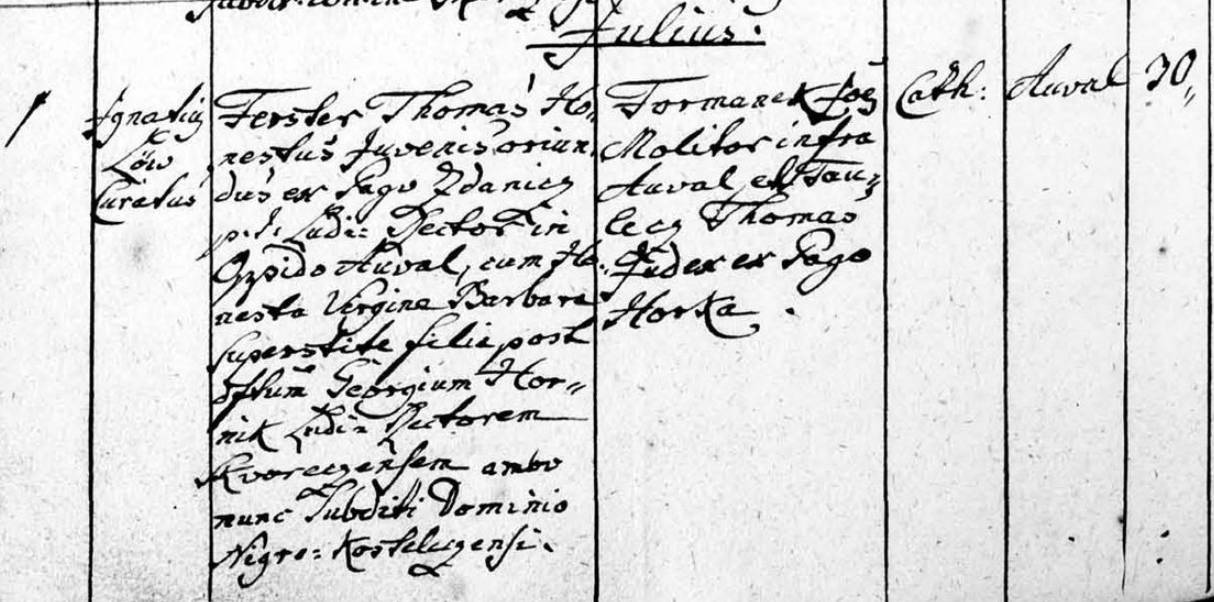 Julius.
1
Ignatius
Löw
Curatus
Ferster Thomas Ho„
nestus Juvenis oriun„
dus ex Pago Zdanicz
p: t: Ludi: Rector in
Oppido Auval, cum Ho„
nesta Virgine Barbara
superstite filia post
Georgium Hor„
nik Ludi: Rectorem
Kvoreczensem ambo
nunc Subditi Dominio
Nigro: Kosteleczensi.
Formanek Joē
Molitor infra
Auval, et Tau„
lecz Thomas
Judex ex Pago
Horka.
Cath:
Auval
30„